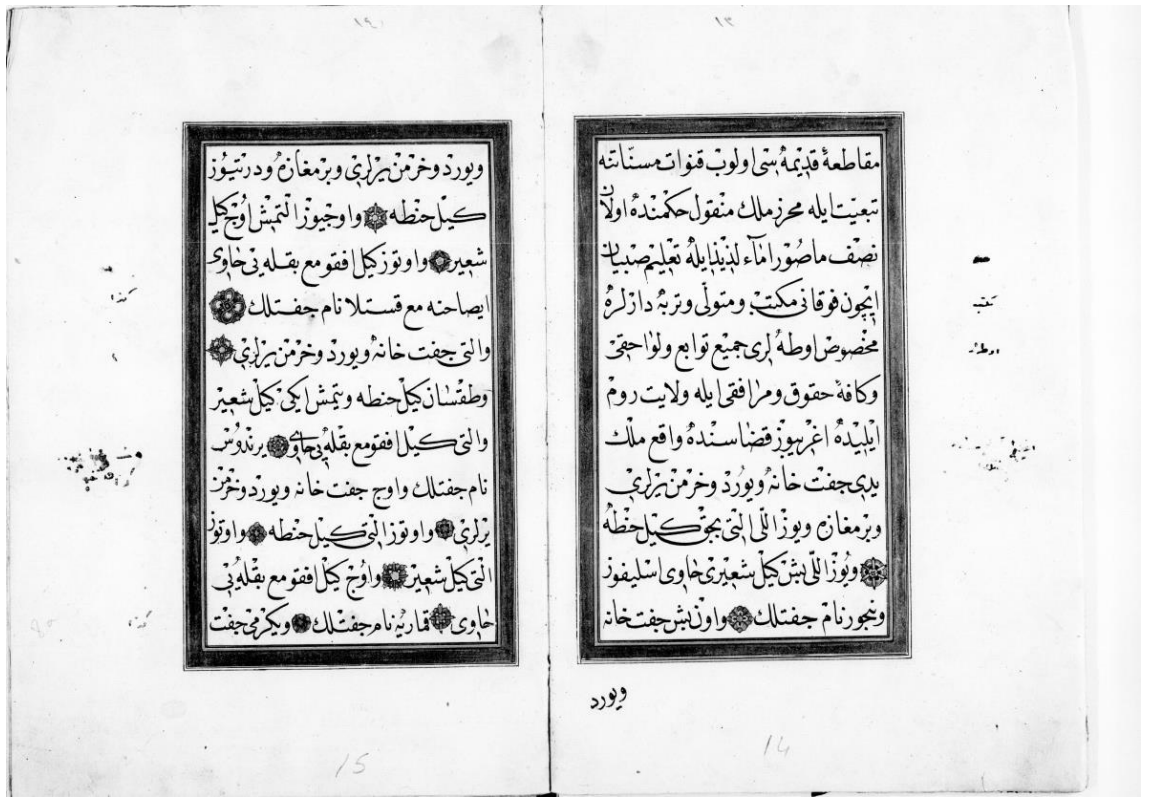 ١٣
مقاطعهٔ قديمه‌سى اولوب قنوات مسنّاتنه
تبعيت ايله محرز ملك منقول حكمنده اولان
نصف ماصور اماء لذيذ ايله تعليم صبيان
ايچون فوقانى مكتب ومتولّى وتربه دارلره
مخصوص اوطه لرى جميع توابع ولواحقى
وكافهٔ حقوق ومرافقى ايله ولايت روم
ايليده اغريبوز قضاسنده واقع ملك
يدى جفت خانه ويورد وخرمن يرلرى
وبر مغازه ويوز اللى التى بچق كيل حنطه
ويوز اللى بش كيل شعيرى حاوى اسليفوز
نام جفتلك واون بش جفت خانه
ويورد
14
١٤
ويورد وخرمن يرلرى وبر مغازه ودرتيوز
كيل حنطه واوجيوز التمش اوچ كيل
شعير واوتوز كيل افقو مع بقله يى حاوى
ايصاحنه مع قستلا نام جفتلك
والتى جفت خانه ويورد وخرمن يرلرى
وطقسان كيل حنطه ويتمش ايكى كيل شعير
والتى كيل افقو مع بقله يى حاوى
نام جفتلك واوچ جفت خانه ويورد وخرمن
يرلرى واوتوز التى كيل حنطه واوتوز
التى كيل شعير واوچ كيل افقو مع بقله يى
حاوى قماريه نام جفتلك ويكرمى جفت
15